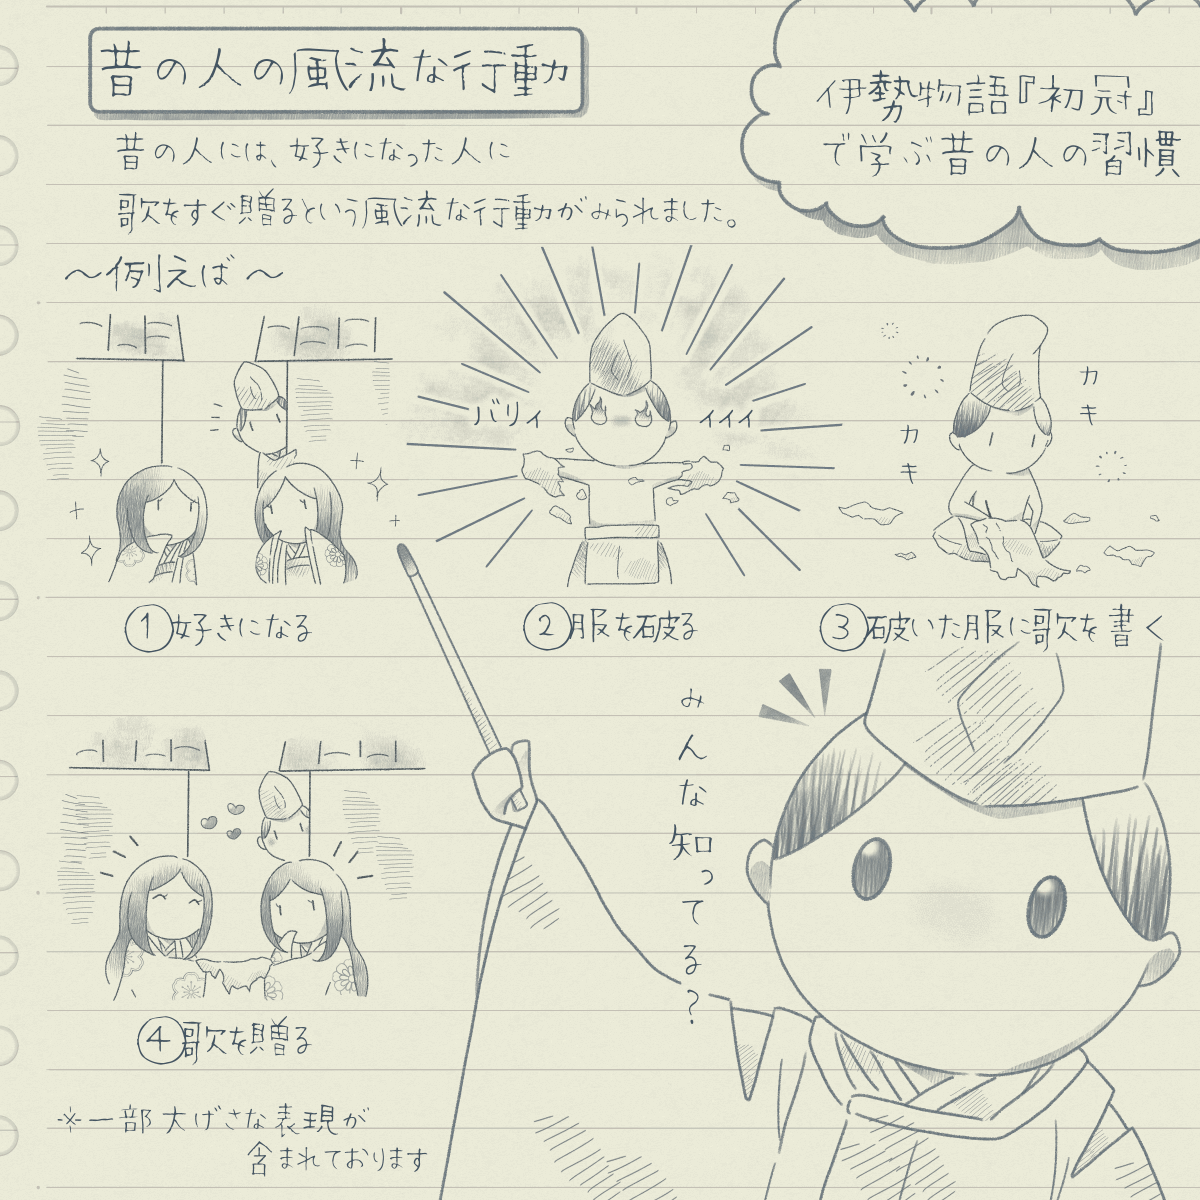 昔の人の風流な行動
伊勢物語『初冠』
で学ぶ昔の人の習慣
昔の人には、好きになった人に
歌をすぐ贈るという風流な行動がみられました。
〜例えば〜
バリィ
ィィィ
カキ
カキ
①好きになる
②服を破る
③破いた服に歌を書く
みんな知ってる?
④歌を贈る
※一部大げさな表現が
含まれております